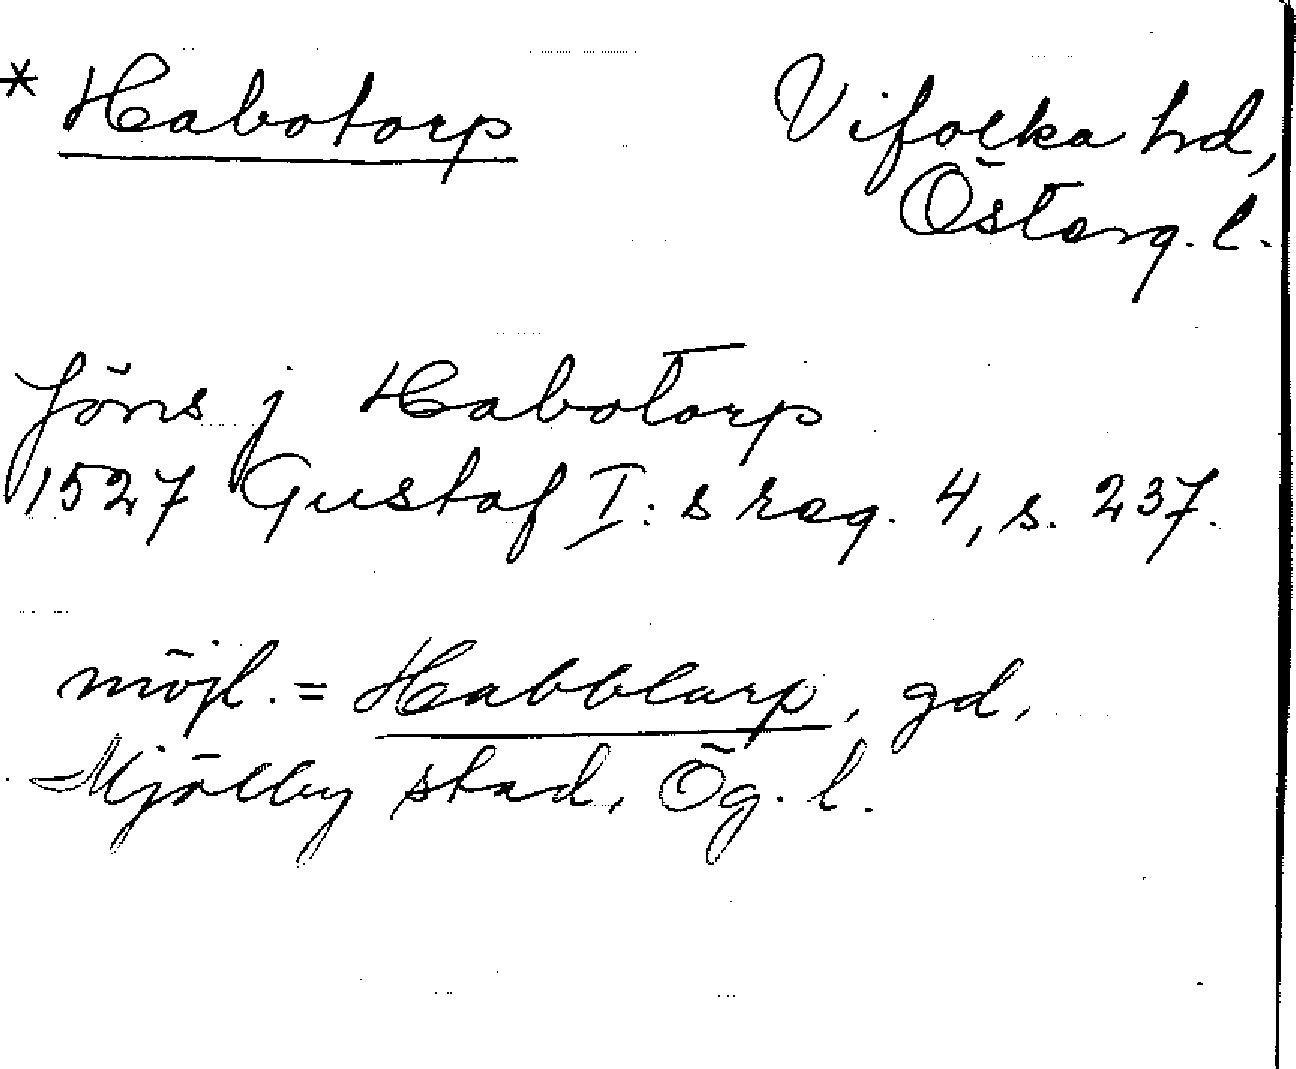 * Habotorp Vifolka hd,
Österg. l.
Jöns j Habotorp
1527 Gustaf I:s reg. 4, s. 237.
möjl. = Habblarp, gd,
Mjölby stad, Ög. l.